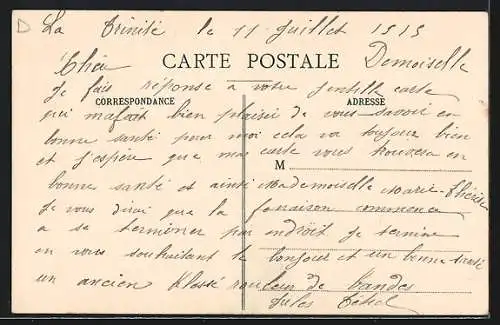 D
La Trinité le 11 Juillet 1915
CARTE POSTALE
Chère Demoiselle
Je fais réponse a votre gentille carte
CORRESPONDANCE ADRESSE
qui mafait bien plaisir de vous savoir en
bonne santé pour moi cela va toujour bien
et j'espere que ma carte vous trouvera en
M
bonne santé et ainsi Mademoiselle Marie-Thérèse
Je vous dirai que la fenaison commence
a se terminer par indroit Je termine
en vous souhaitant le bonjour et un bonne santé
un ancien Klassé rouleur de bandes
Jules